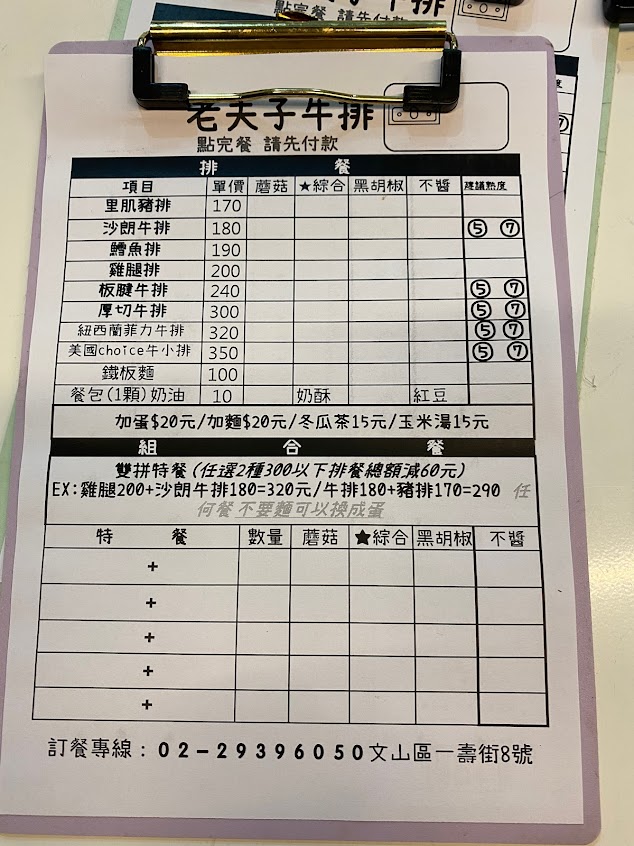 老夫子牛排
點完餐 請先付款
排 餐
項目 單價 蘑菇 ★綜合 黑胡椒 不醬 建議熟度
里肌豬排 170
沙朗牛排 180 ⑤ ⑦
鱈魚排 190
雞腿排 200
板腱牛排 240 ⑤ ⑦
厚切牛排 300 ⑤ ⑦
紐西蘭菲力牛排 320 ⑤ ⑦
美國choice牛小排 350 ⑤ ⑦
鐵板麵 100
餐包(1顆)奶油 10 奶酥 紅豆
加蛋$20元/加麵$20元/冬瓜茶15元/玉米湯15元
組 合 餐
雙拼特餐(任選2種300以下排餐總額減60元)
EX:雞腿200+沙朗牛排180=320元/牛排180+豬排170=290 任
何餐 不要麵可以換成蛋
特 餐 數量 蘑菇 ★綜合 黑胡椒 不醬
+
+
+
+
+
訂餐專線：02-29396050文山區一壽街8號